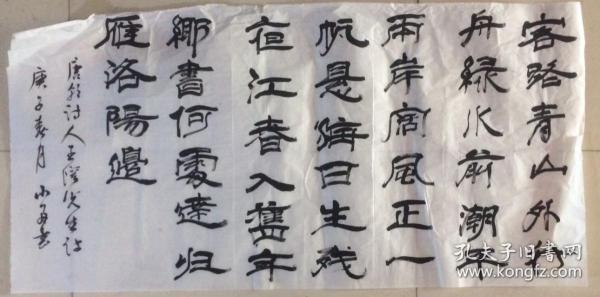 客路青山外行
舟綠水前潮平
兩岸闊風正一
帆悬海日生残
夜江春入舊年
鄉書何處達归
雁洛陽邊
唐朝诗人王湾先生诗
庚子春月
孔夫子旧书网
www.kongfz.com